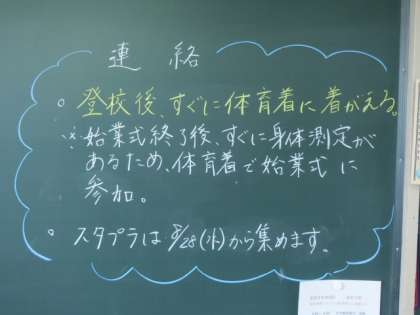 連絡
。登校後、すぐに体育着に着がえる。
※始業式終了後、すぐに身体測定が
あるため、体育着で始業式に
参加。
。スタプラは8/28(水)から集めます。